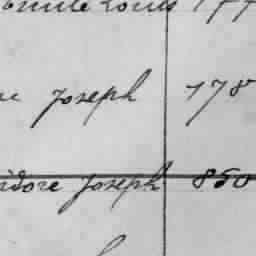 Louis 177
Joseph 178
idore Joseph 850